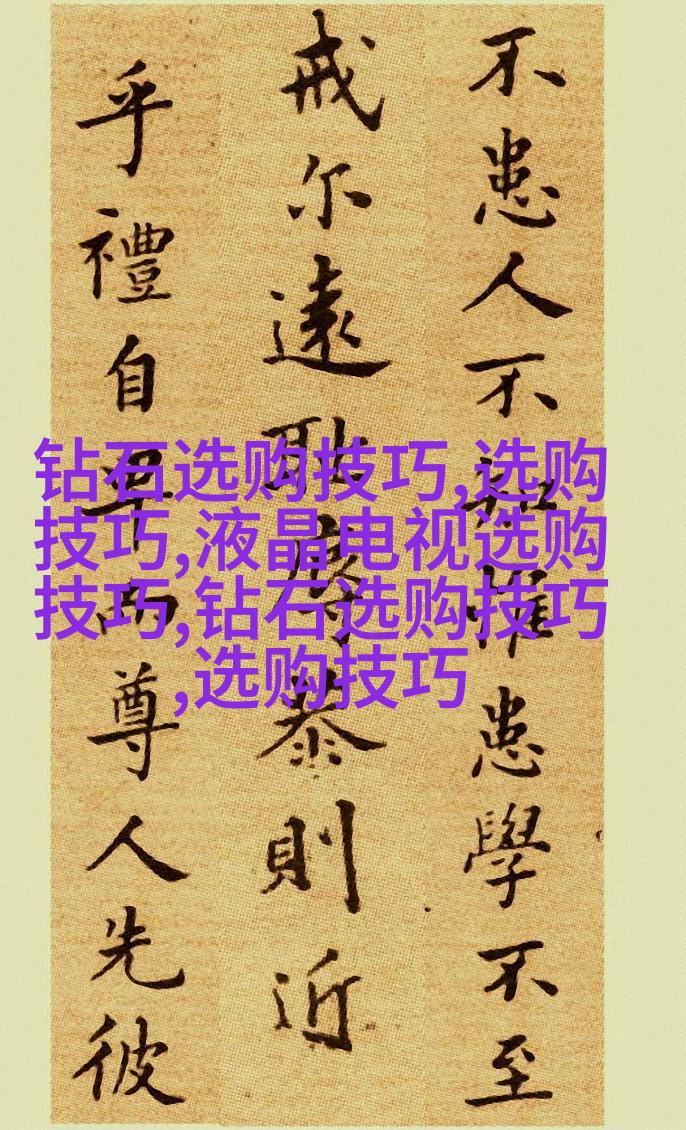 不患人不知惟患學不至
戒尔遠耻辱恭則近
乎禮自卑而尊人先彼
钻石选购技巧,选购
技巧,液晶电视选购
技巧,钻石选购技巧
,选购技巧